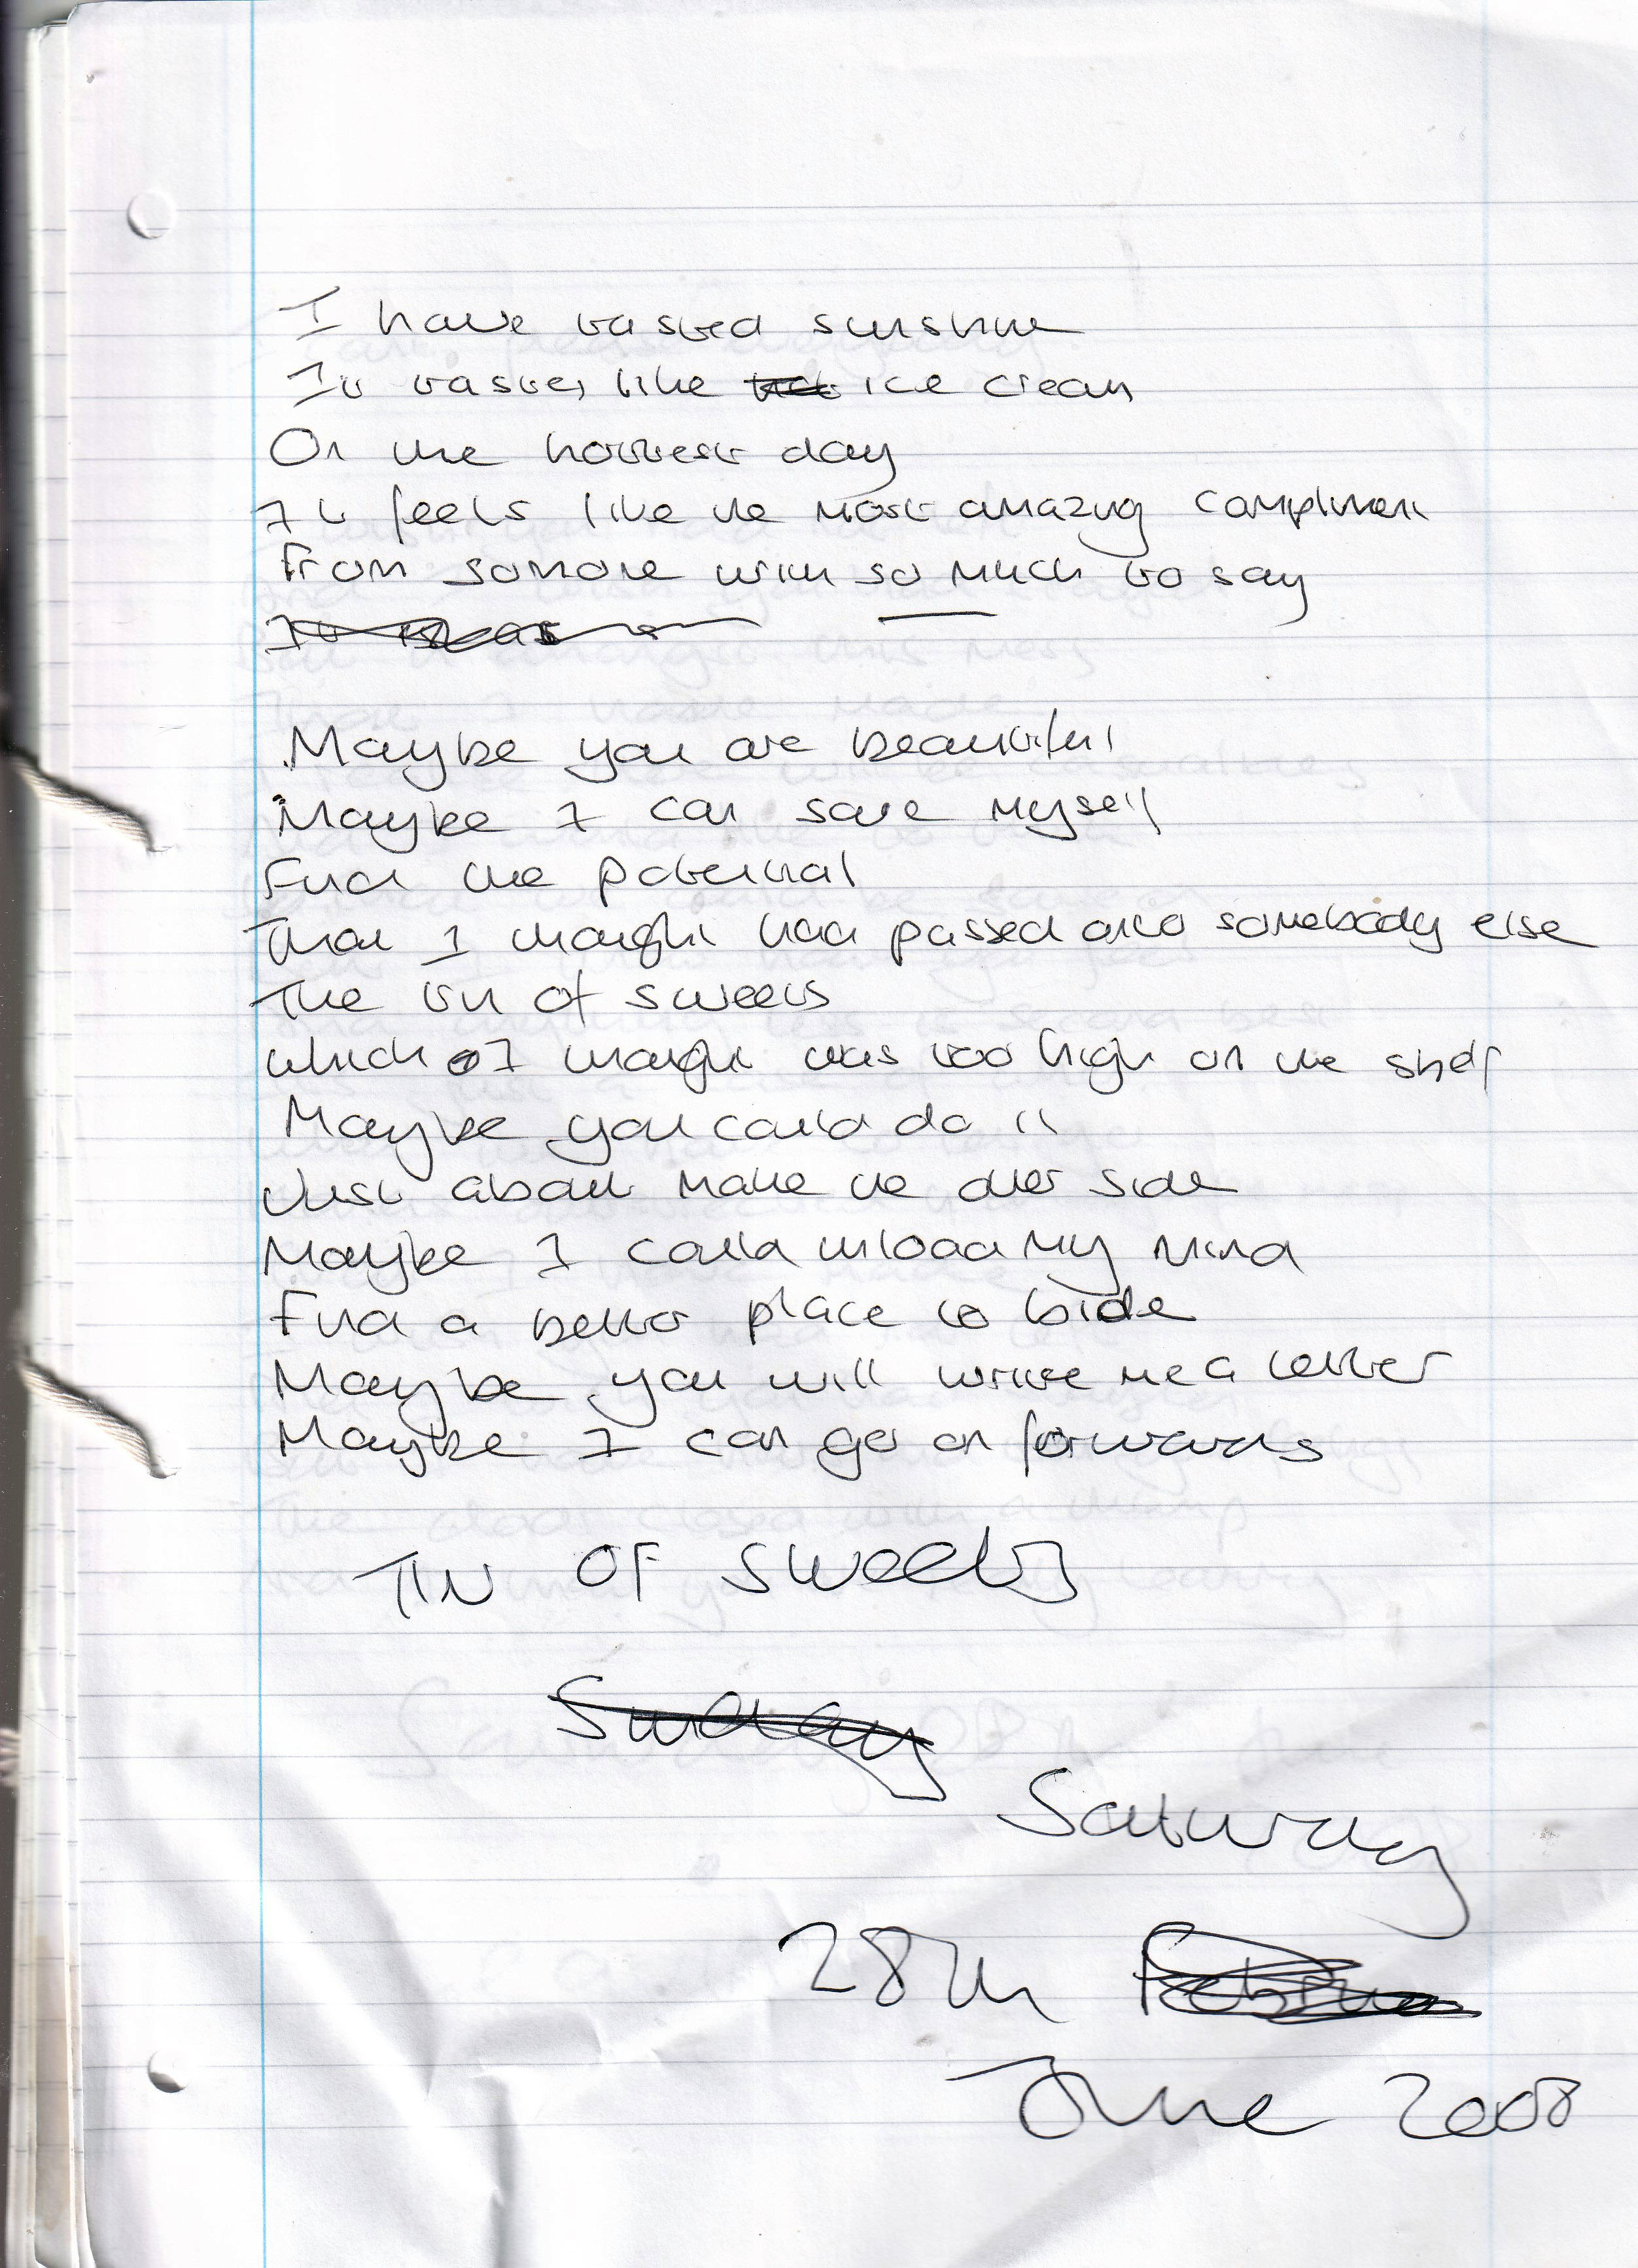 I have tasted sunshine
It tastes like ice cream
On the hottest day
It feels like the most amazing compliment
From somone with so much to say
Maybe you are beautiful
Maybe I can save myself
Find the potential
That I thought had passed onto somebody else
The tin of sweets
which I thought was too high on the shelf
Maybe you could do it
Just about make the other side
Maybe I could unload my mind
Find a better place to hide
Maybe you will write me a letter
Maybe I can go on forwards
TIN OF SWEETS
Sunday
Saturday
28th
June 2008